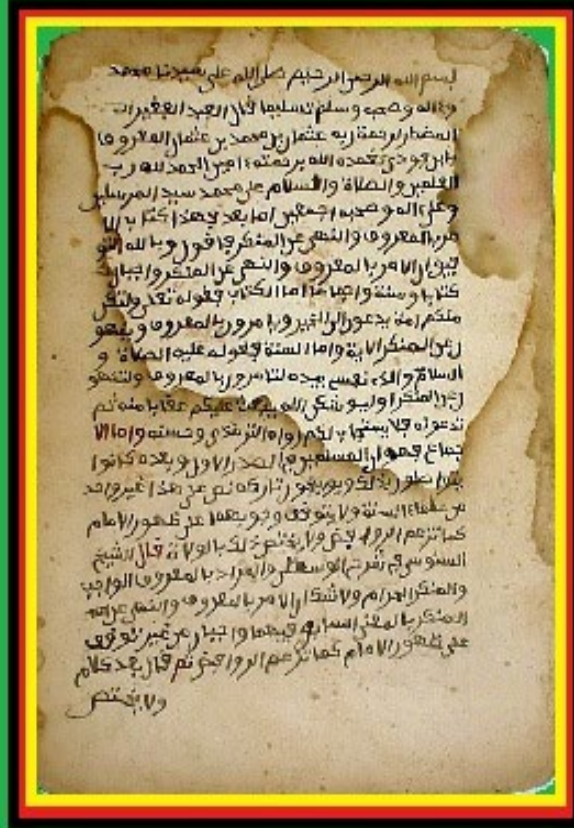 بسم الله الرحمن الرحيم صلى الله على سيدنا محمد
وءاله وصحبه وسلم تسليما قال العبد الفقير الى
المضطر لرحمة ربه عثمان بن محمد بن عثمان المعروف
بابن فودي تغمده الله برحمته ءامين الحمد لله رب
العلمين والصلاة والسلام على محمد سيد المرسلين
وعلى ءاله وصحبه اجمعين اما بعد فهذا كتاب الا
مر بالمعروف والنهي عن المنكر فاقول وبالله التو
فيق ان الامر بالمعروف والنهي عن المنكر واجبان
كتابا وسنة واجماعا اما الكتاب فقوله تعلى ولتكن
منكم امة يدعون الى الخير ويامرون بالمعروف وينهو
ن عن المنكر الاية واما السنة فقوله عليه الصلاة و
السلام والذي نفسي بيده لتامرون بالمعروف ولتنهو
ن عن المنكر او ليوشكن الله يبعث عليكم عقابا منه ثم
تدعونه فلا يستجاب لكم رواه الترمذي وحسنه واما الا
جماع فهو ان المسلمين في الصدر الاول وبعده كانوا
يتواصون بذلك ويوبخون تاركه نص على هذا غير واحد
من علماء السنة ولا يتوقف وجوبهما على ظهور الامام
كما تزعم الروافض ولا يختص ذلك بالولاة قال الشيخ
السنوسي في شرح الوسطى والمراد بالمعروف الواجب
والمنكر الحرام ولا شك ان الامر بالمعروف والنهي عن
المنكر بالمعنى السابق فيهما واجبان من غير توقف
على ظهور الامام كما تزعم الروافض ثم قال بعد كلام
ولا يختص